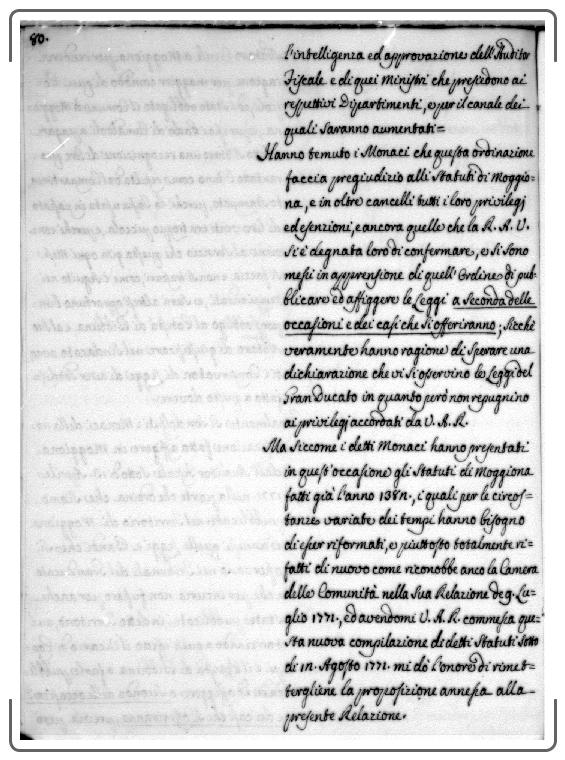 80.
l'intelligenza ed approvazione dell'Auditor
Fiscale e di quei Ministri che presedono ai
respettivi Dipartimenti, e per il canale dei
quali saranno aumentati=
Hanno temuto i Monaci che questa ordinazione
faccia pregiudizio alli Statuti di Moggio=
na, e in oltre cancelli tutti i loro privilegj
ed esenzioni, e ancora quelle che la R. A. V.
si è degnata loro di confermare, e si sono
messi in apprensione di quell'Ordine di pub=
blicare ed affiggere le Leggi a seconda delle
occasioni e dei casi che si offeriranno; sicchè
veramente hanno ragione di sperare una
dichiarazione che vi si osservino le Leggi del
Gran Ducato in quanto però non repugnino
ai privilegj accordati da V. A. R.
Ma siccome i detti Monaci hanno presentati
in quest'occasione gli Statuti di Moggiona
fatti già l'anno 1387., i quali per le circos=
tanze variate dei tempi hanno bisogno
di esser riformati, e piuttosto totalmente ri=
fatti di nuovo come riconobbe anco la Camera
delle Comunità nella sua Relazione de 9. Lu=
glio 1771., ed avendomi V. A. R. commessa que=
sta nuova compilazione di detti Statuti sotto
di 17. Agosto 1771. mi do l'onore di rimet=
tergliene la proposizione annessa alla
presente Relazione.